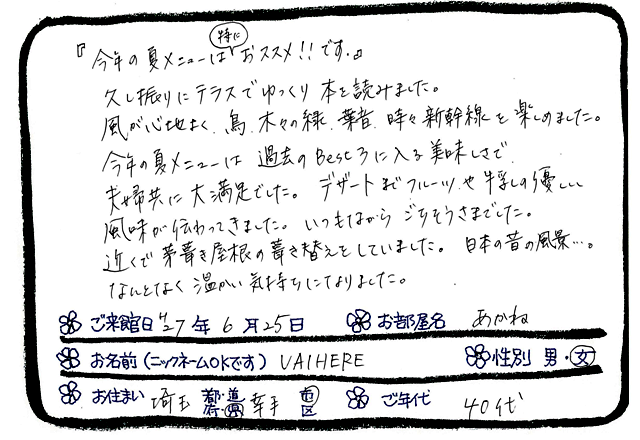 『今年の夏メニューは特におススメ!!です。』
久し振りにテラスでゆっくり本を読みました。
風が心地よく、鳥、木々の緑、葉音、時々新幹線を楽しめました。
今年の夏メニューは過去のBest3に入る美味しさで、
夫婦共に大満足でした。デザートまでフルーツや牛乳の優しい
風味が伝わってきました。いつもながらごちそうさまでした。
近くで茅葺き屋根の葺き替えをしていました。日本の昔の風景…。
なんとなく温かい気持ちになりました。
ご来館日 H27年6月25日 お部屋名 あかね
お名前(ニックネームOKです) VAIHERE 性別 男・女
お住まい 埼玉 都・道・府・県 幸手 市区 ご年代 40代